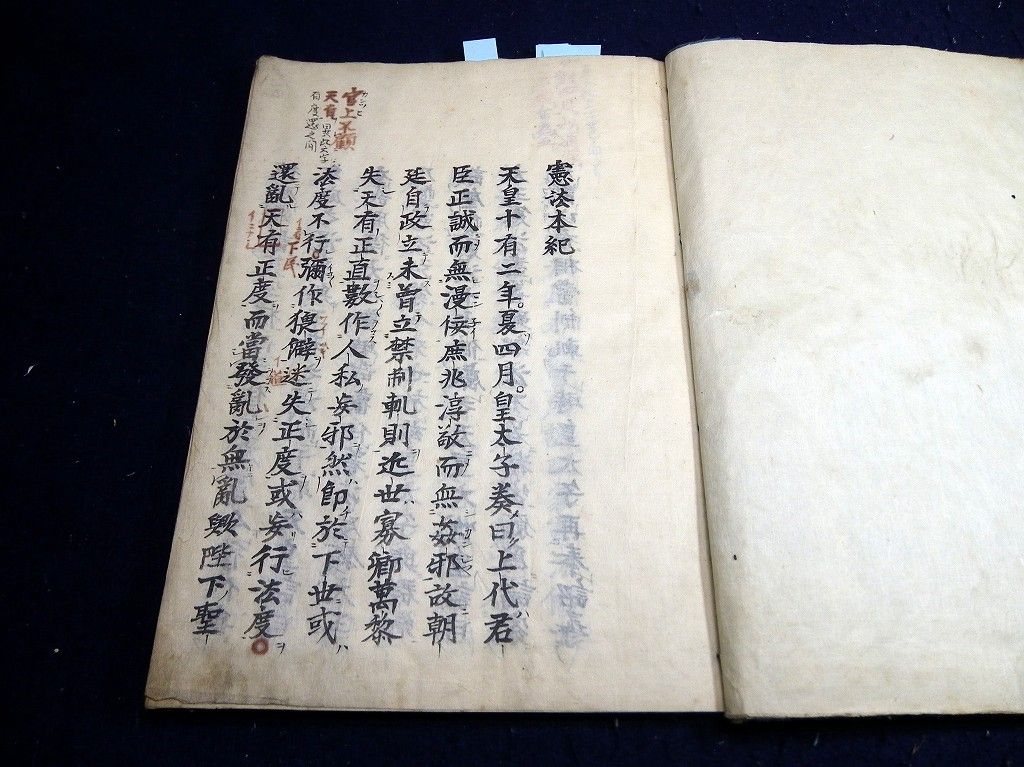 憲法本紀
天皇十有二年。夏四月。皇太子奏曰上代君
臣正誠而無漫佞庶兆淳敬而無姦邪故朝
廷自政立未曽立禁制軌則近世寡卿萬黎
失天有正直數作人私妄邪然即於下世或
法度不行彌作猥僻迷失正度或妄行法度
還亂天有正度而當發亂於無亂歟陛下聖
官上不顧
天有
下民